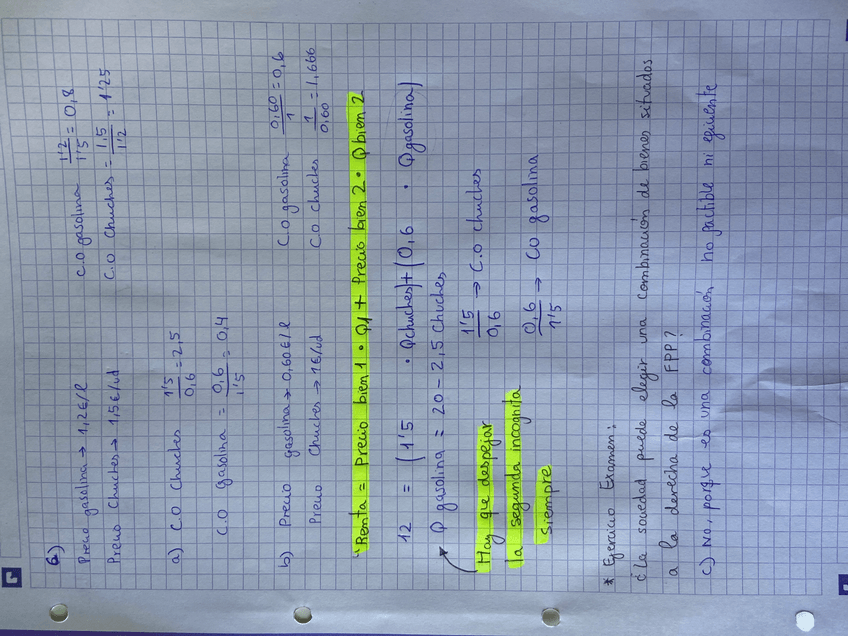 6)
Precio gasolina → 1,2€/l
Precio Chuches → 1,5€/ud
C.O gasolina 1'2/1'5 = 0,8
C.O Chuches = 1,5/1'2 = 1'25
a) C.O Chuches 1'5/0,6 = 2,5
C.O gasolina = 0,6/1'5 = 0,4
b) Precio gasolina → 0,60€/l
Precio Chuches → 1€/ud
C.O gasolina 0,60/1 = 0,6
C.O Chuches 1/0,60 = 1,666
"Renta = Precio bien 1 · Q1 + Precio bien 2 · Qbien 2
12 = (1'5 · Qchuches) + (0,6 · Qgasolina)
Q gasolina = 20 - 2,5 Chuches
Hay que despejar
la segunda incognita
siempre
1'5/0,6 → C.O chuches
0,6/1'5 → CO gasolina
* Ejercicio Examen:
¿La sociedad puede elegir una combinación de bienes situados
a la derecha de la FPP?
c) No, porque es una combinación no factible ni eficiente